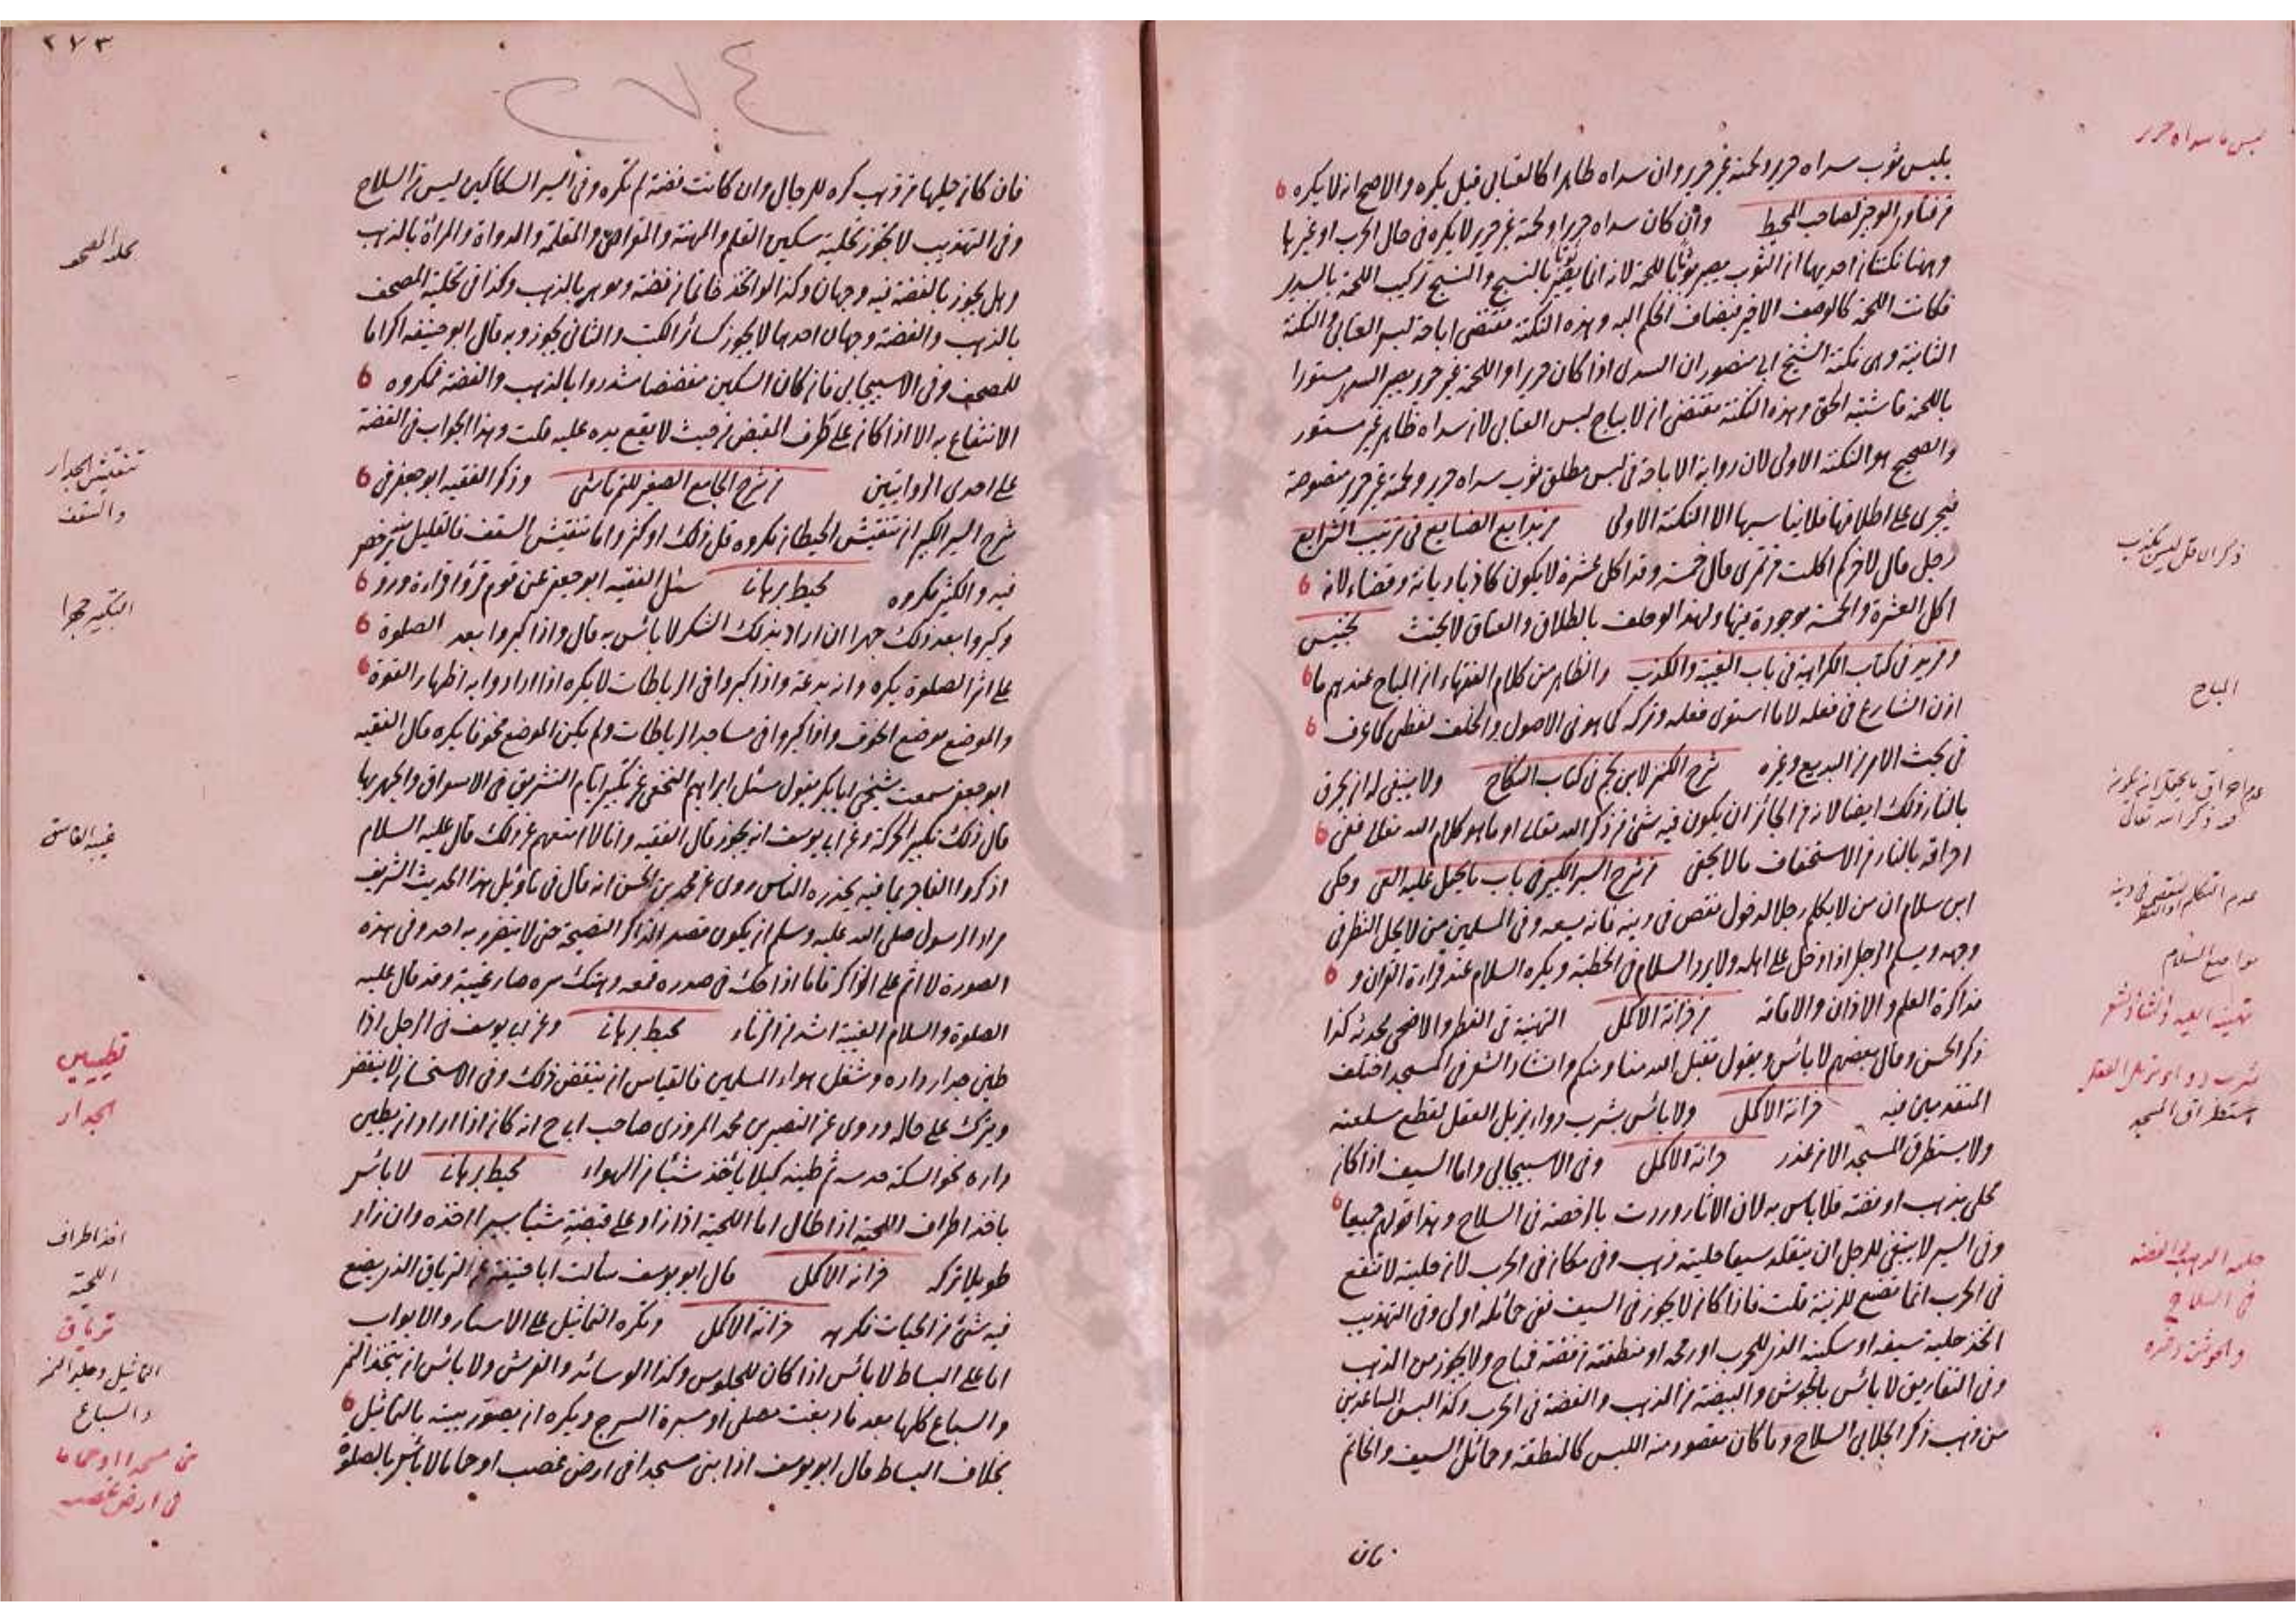 يلبس ثوب سداه حرير ولحمته غير حرير وان سداه ظاهرا كالعتابى قيل يكره والاصح انه لا يكره
من فتاوى الوجيز لصاحب المحيط وان كان سداه حريرا ولحمته غير حرير لا يكره فى حال الحرب او غيرها
وههنا نكتتان احديهما ان الثوب يصير ثوبا باللحمة لانه انما يصير ثوبا بالنسج والنسج تركيب اللحمة بالسدى
فكانت اللحمة كالوصف الاخير فيضاف الحكم اليه وهذه النكتة مقتضى اباحة لبس العتابى والنكتة
الثانية وهى نكتة الشيخ ابى منصور ان السدى اذا كان حريرا واللحمة غير حرير يصير السدى مستورا
باللحمة فاشتبه الحق وهذه النكتة مقتضى ان لا يباح لبس العتابى لان سداه ظاهر غير مستور
والصحيح هو النكتة الاولى لان رواية الاباحة فى لبس مطلق ثوب سداه حرير ولحمته غير حرير منصوصة
فيجرى على اطلاقها فلا يناسبها الا النكتة الاولى من بدايع الصنايع فى ترتيب الشرايع
رجل قال لاخر كم اكلت من تمرى قال خمسة وقد اكل عشرة لا يكون كاذبا ديانة وقضاء لانه
اكل العشرة والخمسة موجودة فيها ولهذا لو حلف بالطلاق والعتاق لا يحنث تجنيس
ومزيد فى كتاب الكراهية فى باب الغيبة والكذب والظاهر من كلام الفقهاء ان المباح عندهم ما
اذن الشارع فى فعله لا ما استوى فعله وتركه كما هو فى الاصول والخلف لفظى كما عرف
فى بحث الامر من البديع وغيره شرح الكنز لابن نجيم فى كتاب النكاح ولا ينبغى له ان يحرق
بالنار ذلك ايضا لانه من الجائز ان يكون فيه شئ من ذكر الله تعالى او ما هو كلام الله تعالى ففى
احراقه بالنار من الاستخفاف ما لا يخفى من شرح السير الكبير فى باب ما يحمل عليه الفئ وحكى
ابن سلام ان من لا يكلم رجلا لدخول نقص فى دينه فانه يسعه وفى المسلمين من لا يحل النظر فى
وجهه ويسلم الرجل اذا دخل على اهله ولا يرد السلام فى الخطبة ويكره السلام عند قراءة القران و
مذاكرة العلم والاذان والاقامة من خزانة الاكمل التهنية فى الفطر والاضحى محدثة كذا
ذكر الحسن وقال بعضهم لا بائس ويقول تقبل الله منا ومنكم وانشاد الشعر فى المسجد اختلف
المتقدمين فيه خزانة الاكمل ولا بائس بشرب دواء يزيل العقل لقطع سلعته
ولا يستطرق المسجد الا من عذر خزانة الاكمل وفى الاسبيجابى واما السيف اذا كان
محلى بذهب او فضة فلا باس به لان الاثار وردت بالرخصة فى السلاح وهذا قولهم جميعا
وفى السير لا ينبغى للرجل ان يتقلد سيفا حليته ذهب وفى مكان فى الحرب لان حليته لا تنفع
فى الحرب انما تصنع للزينة قلت فاذا كان لا يجوز فى السيف ففى حمائله اولى وفى التهذيب
اتخذ حلية سيفه او سكينه الذى للحرب او رمحه او منطقته من فضة فمباح ولا يجوز من الذهب
وفى التفاريق لا بائس بالجوشن والبيضة من الذهب والفضة فى الحرب وكذا لبس الساعدين
من ذهب ذكر الجلابى السلاح وما كان مقصود منه اللبس كالمنطقة وحمائل السيف والخاتم
فان
لبس ما سداه حرير
المباح
مواضع السلام
تهنية العيد وانشاد شعر
شرب دواء تزيل العقل
استطراق المسجد
حلية الذهب والفضة
فى السلاح
والجوشن وغيره
٢٧٣
٢٧٤
فان كان حليها من ذهب كره للرجال وان كانت فضة لم تكره وفى السير السكاكين ليس من السلاح
وفى التهذيب لا يجوز تحلية سكين القلم والمهنة والمقراض والمقلمة والدواة والمرأة بالذهب
وهل يجوز بالفضة فيه وجهان وكذا لو اتخذ خاتما من فضة وموه بالذهب وكذا فى تحلية المصحف
بالذهب والفضة وجهان احدهما لا يجوز كسائر الكتب والثانى يجوز وبه قال ابو حنيفة اكراما
للمصحف وفى الاسبيجابى فان كان السكين مفضضا مشدودا بالذهب والفضة فمكروه
الانتفاع به الا اذا كان على طرف القبض من حيث لا يقع يده عليه قلت وهذا الجواب فى الفضة
على احدى الروايتين من شرح الجامع الصغير للتمرتاشى وذكر الفقيه ابو جعفر فى
شرح السير الكبير ان تنقيش الحيطان مكروه قل ذلك او كثر واما تنقيش السقف فالقليل يترخص
فيه والكثير مكروه محيط برهانى سئل الفقيه ابو جعفر عن قوم قرؤا قراءة ورد
وكبروا بعد ذلك جهرا ان اراد بذلك الشكر لا بائس به قال واذا كبروا بعد الصلوة
على اثر الصلوة يكره وانه بدعة واذا كبروا فى الرباطات لا يكره اذا ارادوا به اظهار القوة
والموضع موضع الخوف واذا كبروا فى مساجد الرباطات ولم يكن الموضع مخوفا يكره قال الفقيه
ابو جعفر سمعت شيخى ابا بكر يقول سئل ابراهيم النخعى عن تكبير ايام التشريق فى الاسواق والجهر بها
قال ذلك تكبير الحركة وعن ابى يوسف انه يجوز قال الفقيه وانا لا امنعهم عن ذلك قال عليه السلام
اذكروا الفاجر بما فيه يحذره الناس روى عن محمد بن الحسن انه قال فى تأويل هذا الحديث الشريف
مراد الرسول صلى الله عليه وسلم ان يكون قصد الذاكر النصيحة حتى لا يتضرر به احد وفى هذه
الصورة لا اثم على الذاكر فاما اذا حك فى صدره قمعه وهتك سره صار غيبة وقد قال عليه
الصلوة والسلام الغيبة اشد من الزناء محيط برهانى وعن ابى يوسف فى الرجل اذا
طين جدار داره وشغل هواء المسلمين فالقياس ان ينقض ذلك وفى الاستحسان لا ينقض
ويترك على حاله وروى عن النصير بن محمد المروزى صاحب ابى ح انه كان اذا اراد ان يطين
داره نحو السكة خدسه ثم طينه كيلا يأخذ شيئا من الهواء محيط برهانى لا بائس
باخذ اطراف اللحية اذا طال اما اللحية اذا زاد على قبضة شيئا يسيرا اخذه وان زاد
طويلا تركه خزانة الاكمل قال ابو يوسف سألت ابا حنيفة عن الترياق الذى يصنع
فيه شئ من الحيات فكرهه خزانة الاكمل وتكره التماثيل على الاستار والابواب
اما على البساط لا بائس اذا كان للجلوس وكذا الوسائد والفرش ولا بائس ان يتخذ النمر
والسباع كلها بعد ما دبغت مصلى او ميثرة السرج ويكره ان يصور بيته بالتماثيل
بخلاف البساط قال ابو يوسف اذا بنى مسجدا فى ارض غصب او حماما لا بائس بالصلوة
تنقيش الجدار
والسقف
التكبير جهرا
غيبة الفاسق
تطيين
الجدار
اخذ اطراف
اللحية
ترياق
التماثيل وجلد النمر
والسباع
بنى مسجدا او حماما
فى ارض غصب